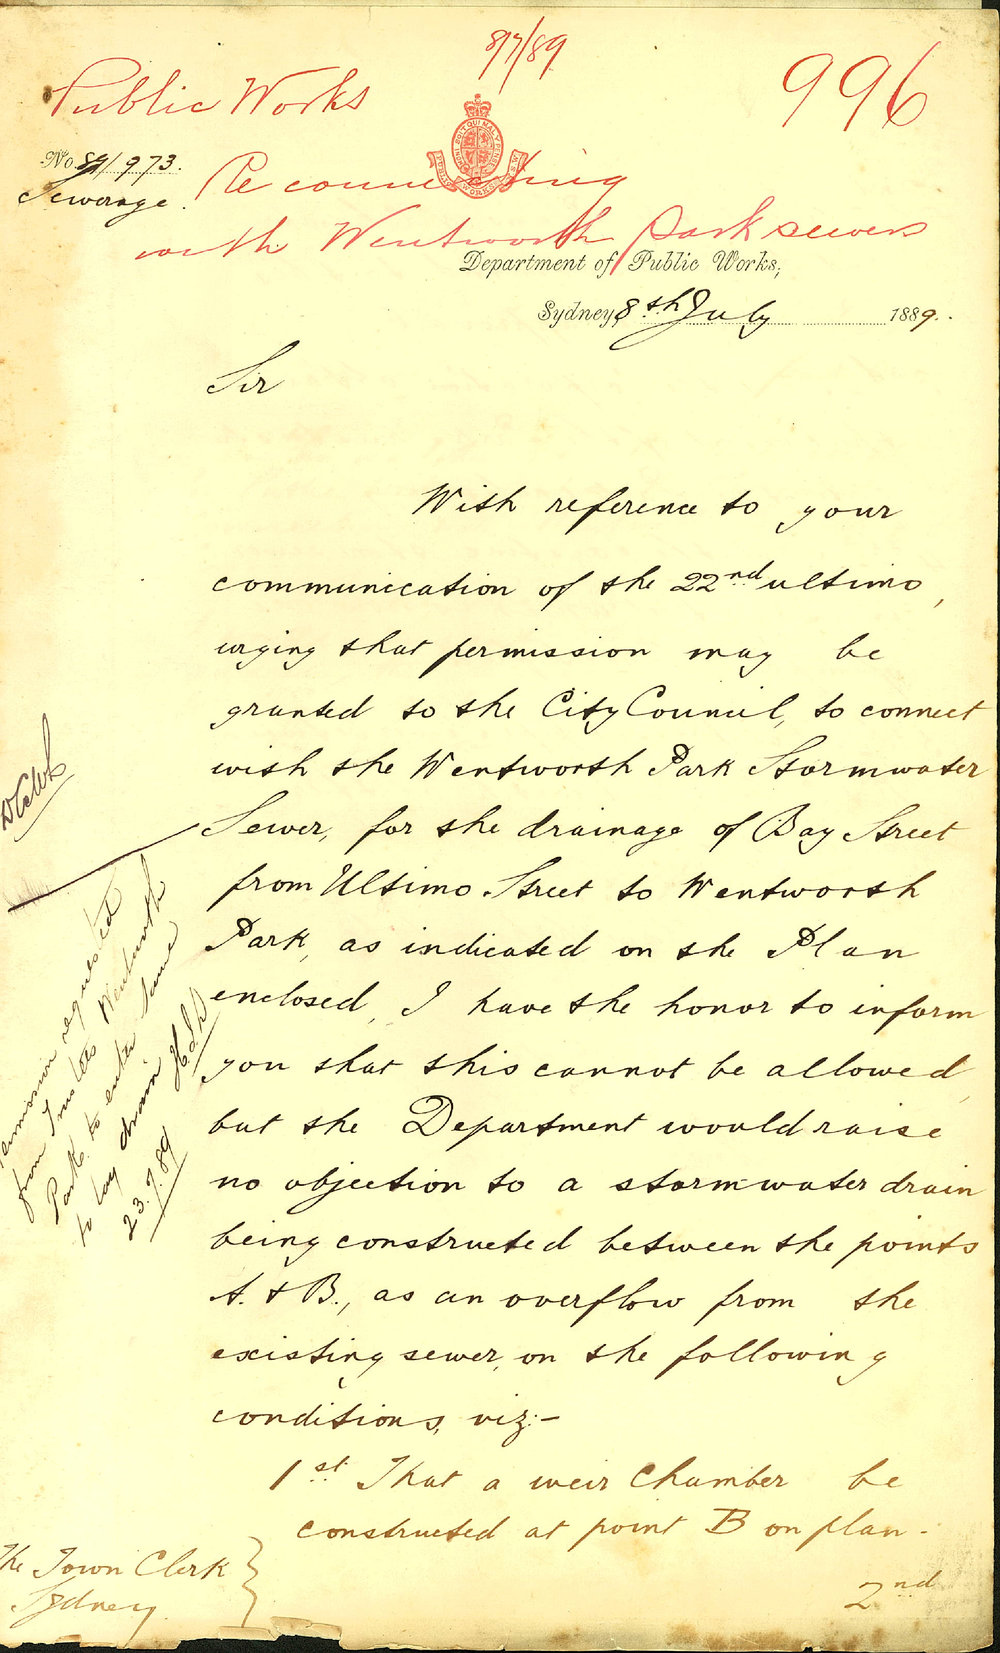 8/7/89
Public Works
996
No. 89/973.
Sewerage.
Re connecting
with Wentworth Park sewers
Department of Public Works,
Sydney, 8th July 1889.
Sir
With reference to your
communication of the 22nd ultimo,
urging that permission may be
granted to the City Council, to connect
with the Wentworth Park Stormwater
Sewer, for the drainage of Bay Street
from Ultimo Street to Wentworth
Park, as indicated on the Plan
enclosed, I have the honor to inform
you that this cannot be allowed,
but the Department would raise
no objection to a stormwater drain
being constructed between the points
A. & B., as an overflow from the
existing sewer, on the following
conditions, viz:-
1st That a weir Chamber be
constructed at point B on plan.
2nd
The Town Clerk
Sydney
Permission requested
from Trustees Wentworth
Park to enter same
to lay drain
23.7.89